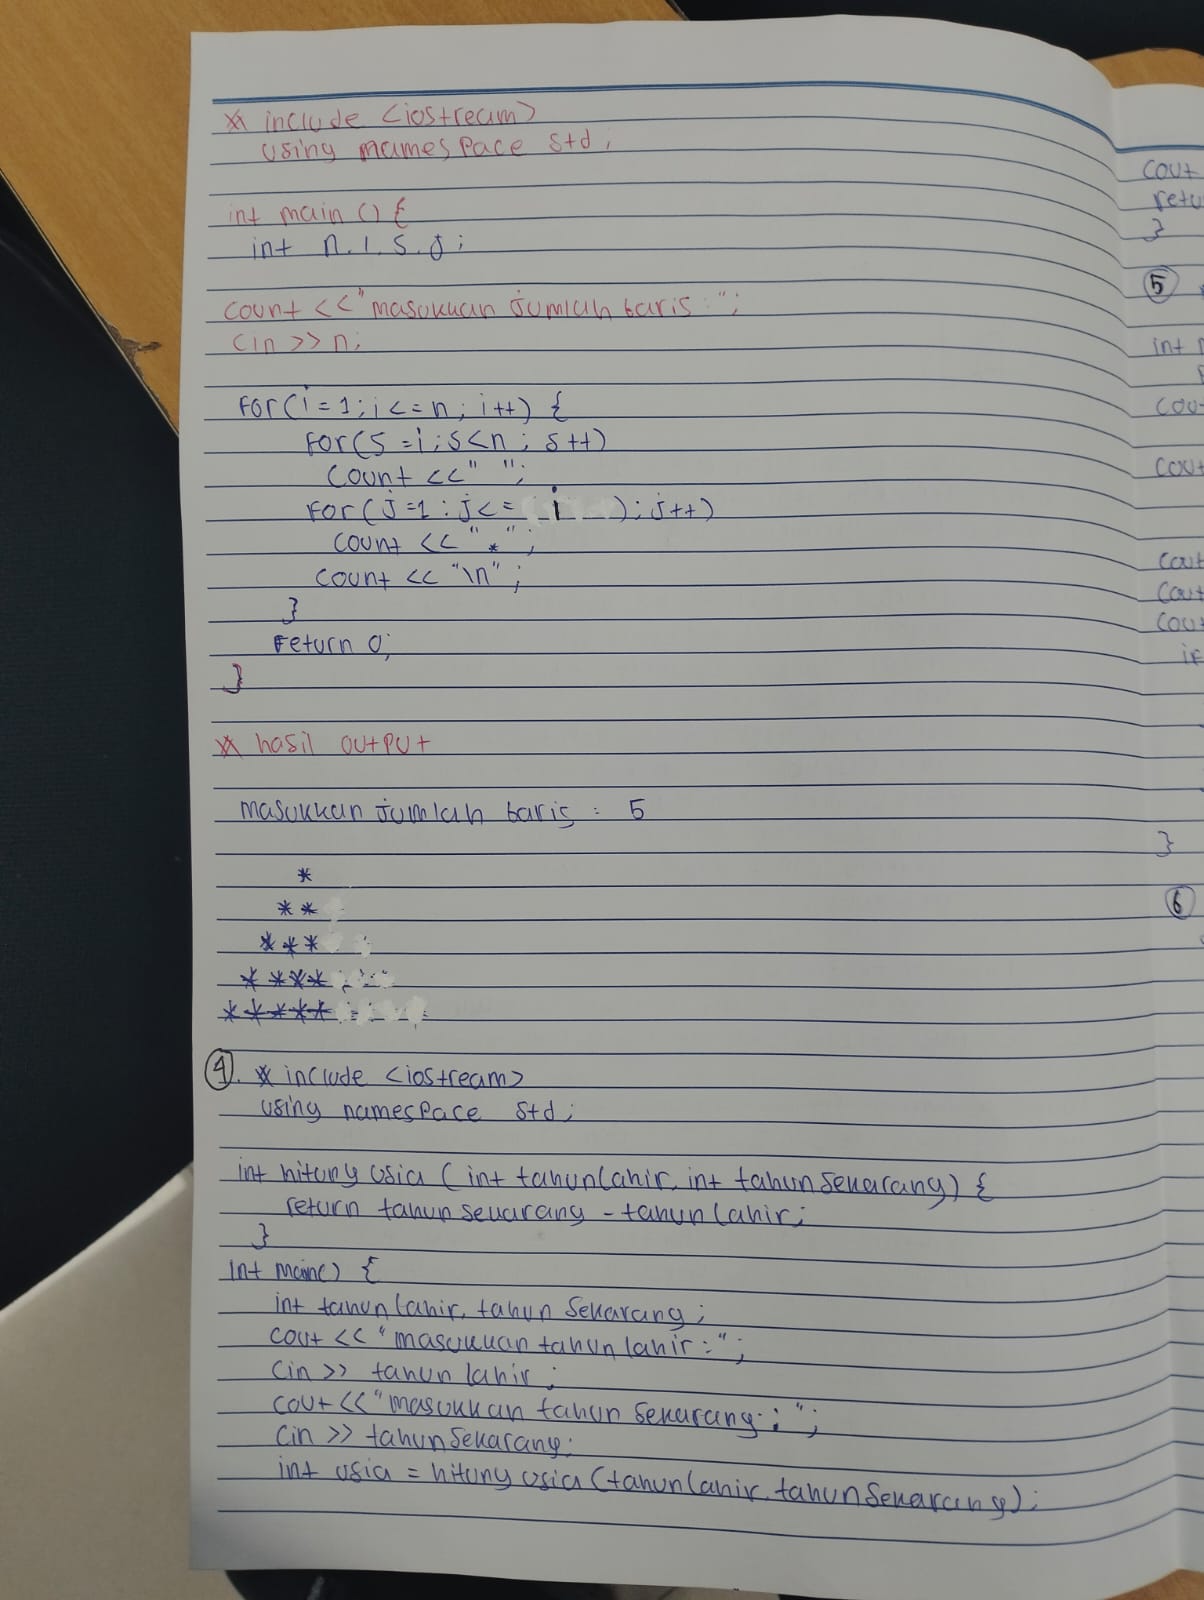 * include <iostream>
using mamespace std;
int main () {
int n, i, s, j;
count <<"masukkan jumlah baris :";
cin >> n;
for(i=1; i<=n; i++) {
for(s=i; s<n; s++)
count <<" ";
for(j=1; j<= i ); j++)
count << "*";
count << "\n";
}
return 0;
}
* hasil output
masukkan jumlah baris : 5
*
**
***
****
*****
4. * include <iostream>
using namespace std;
int hitung usia (int tahunlahir, int tahun sekarang) {
return tahun sekarang - tahun lahir;
}
int main() {
int tahun lahir, tahun sekarang;
cout << "masukkan tahun lahir :";
cin >> tahun lahir;
cout << "masukkan tahun sekarang : ";
cin >> tahun sekarang;
int usia = hitung usia (tahun lahir, tahun sekarang);
cout
retu
}
5
int
cou
cout
cout
cout
cou
if
}
6